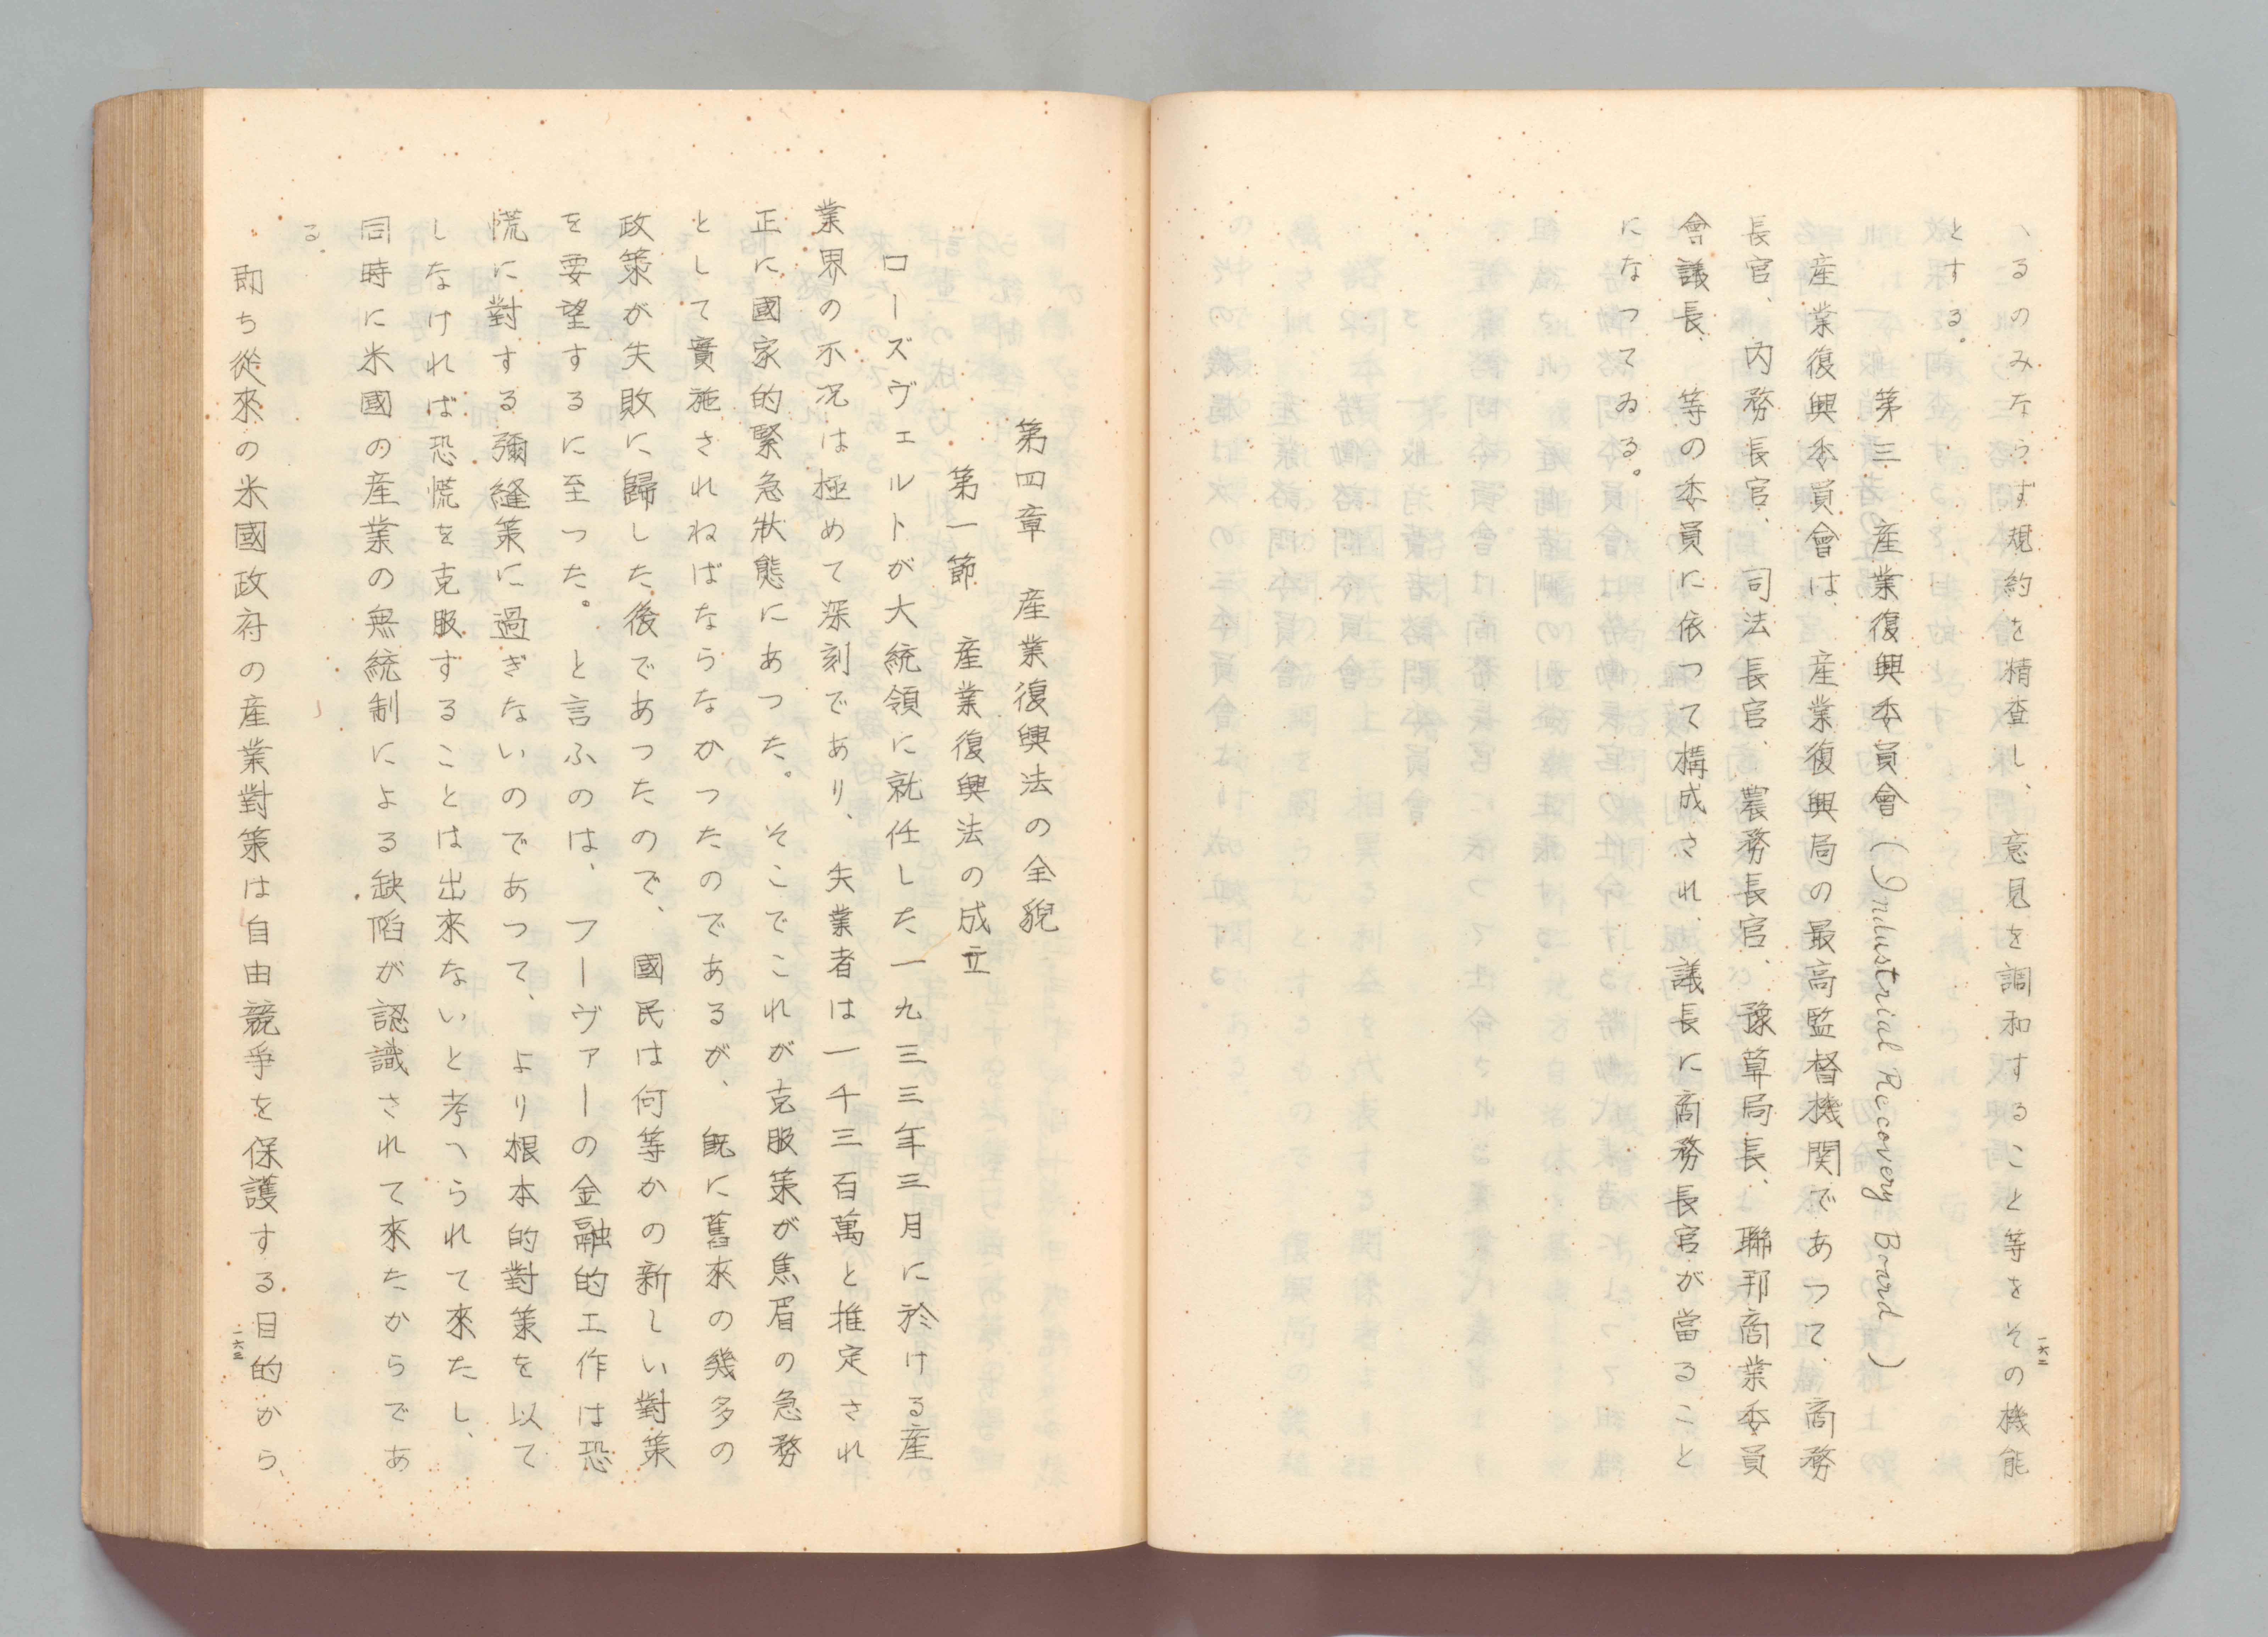 へるのみならず規約を精査し、意見を調和すること等をその機能
とする。
第三　産業復興委員會（Industrial Recovery Board）
産業復興委員會は、産業復興局の最高監督機関であつて、商務
長官、内務長官、司法長官、農務長官、豫算局長、聯邦商業委員
會議長、等の委員に依つて構成され、議長に商務長官が當ること
になつてゐる。
一六二
第四章　産業復興法の全貌
第一節　産業復興法の成立
ローズヴェルトが大統領に就任した一九三三年三月に於ける産
業界の不況は極めて深刻であり、失業者は一千三百萬と推定され
正に國家的緊急狀態にあつた。そこでこれが克服策が焦眉の急務
として實施されねばならなかつたのであるが、既に舊來の幾多の
政策が失敗に歸した後であつたので、國民は何等かの新しい對策
を要望するに至つた。と言ふのは、フーヴァーの金融的工作は恐
慌に對する彌縫策に過ぎないのであつて、より根本的對策を以て
しなければ恐慌を克服することは出來ないと考へられて來たし、
同時に米國の産業の無統制による缺陷が認識されて來たからであ
る。
即ち從來の米國政府の産業對策は自由競爭を保護する目的から、
一六三